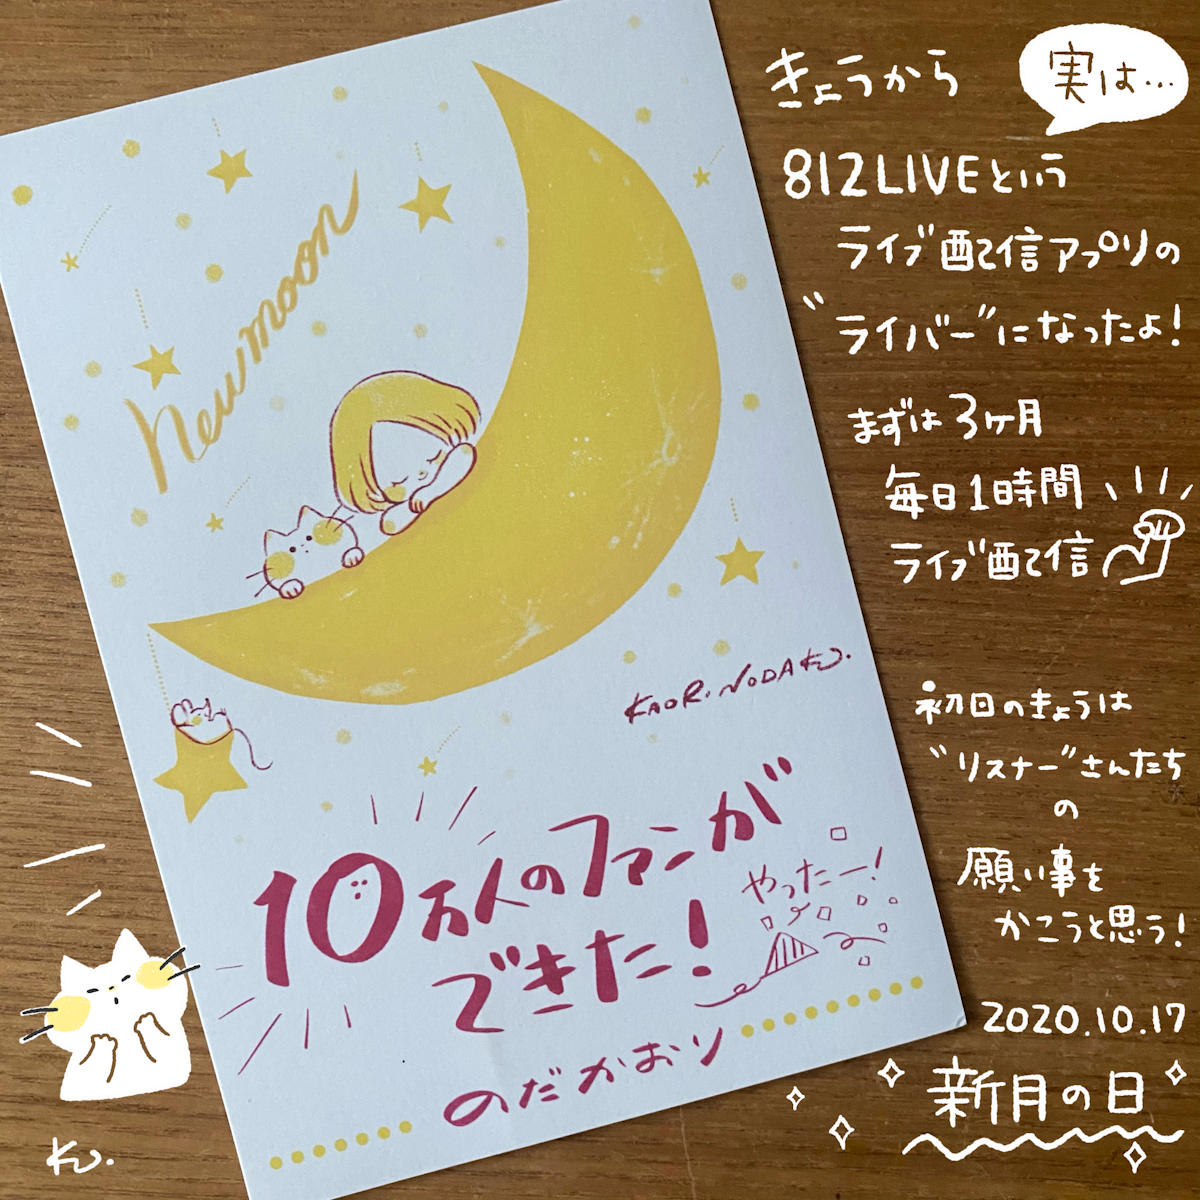 実は…
きょうから
812LIVEという
ライブ配信アプリの
"ライバー"になったよ!
まずは3ヶ月
毎日1時間
ライブ配信
初日のきょうは
"リスナー"さんたち
の
願い事を
かこうと思う!
2020.10.17
新月の日
newmoon
KAORI NODA
10万人のファンが
できた!
やったー!
のだかおり